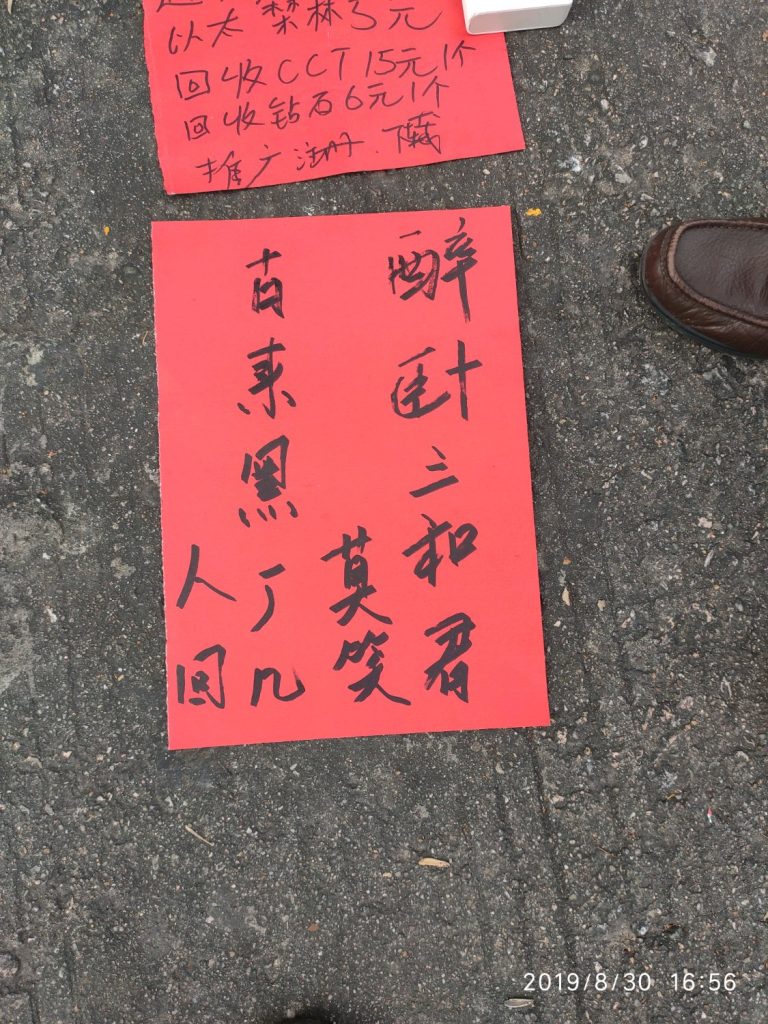 以太森林3元
回收CCT15元1个
回收钻石6元1个
推广注册.下载
醉卧三和君
莫笑
古来黑厂几
人回
2019/8/30 16:56